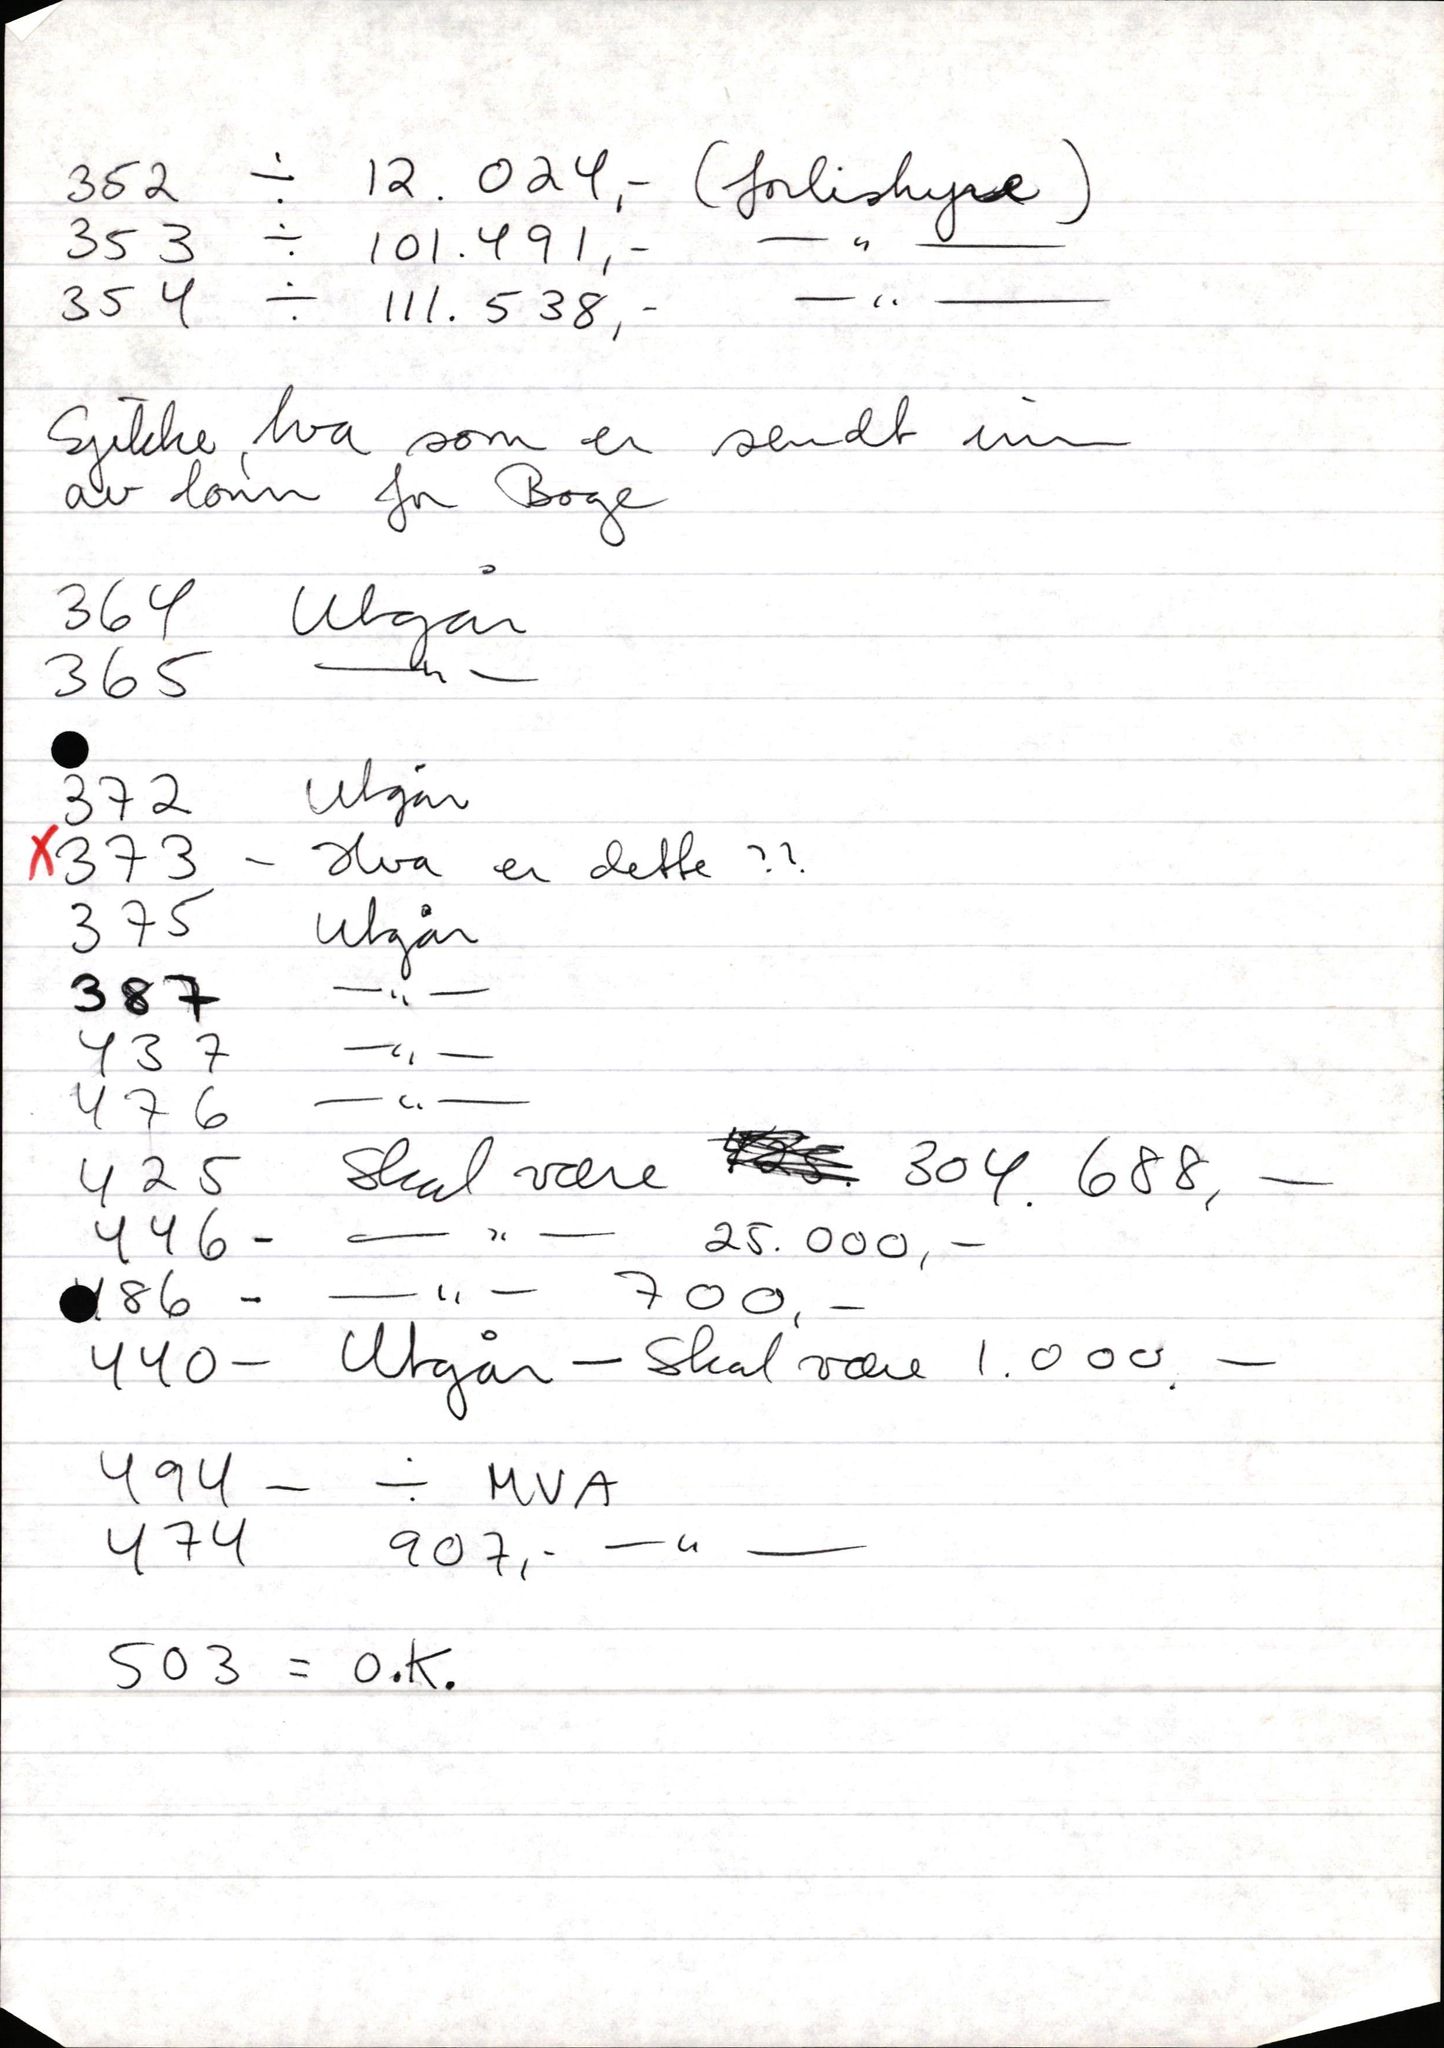 352 ÷ 12.024,- (forlishyre)
353 ÷ 101.491,- — " —
354 ÷ 111.538,- — " —
Sjekke hva som er sendt inn
av lønn for Boge
364 Utgår
365 — " —
372 Utgår
X 373 - Hva er dette ??
375 Utgår
387 — " —
437 — " —
476 — " —
425 Skal være 304.688,—
446 - — " — 25.000,-
486 - — " — 700,-
440 - Utgår - Skal være 1.000,—
494 - ÷ MVA
474 907,- — " —
503 = O.K.